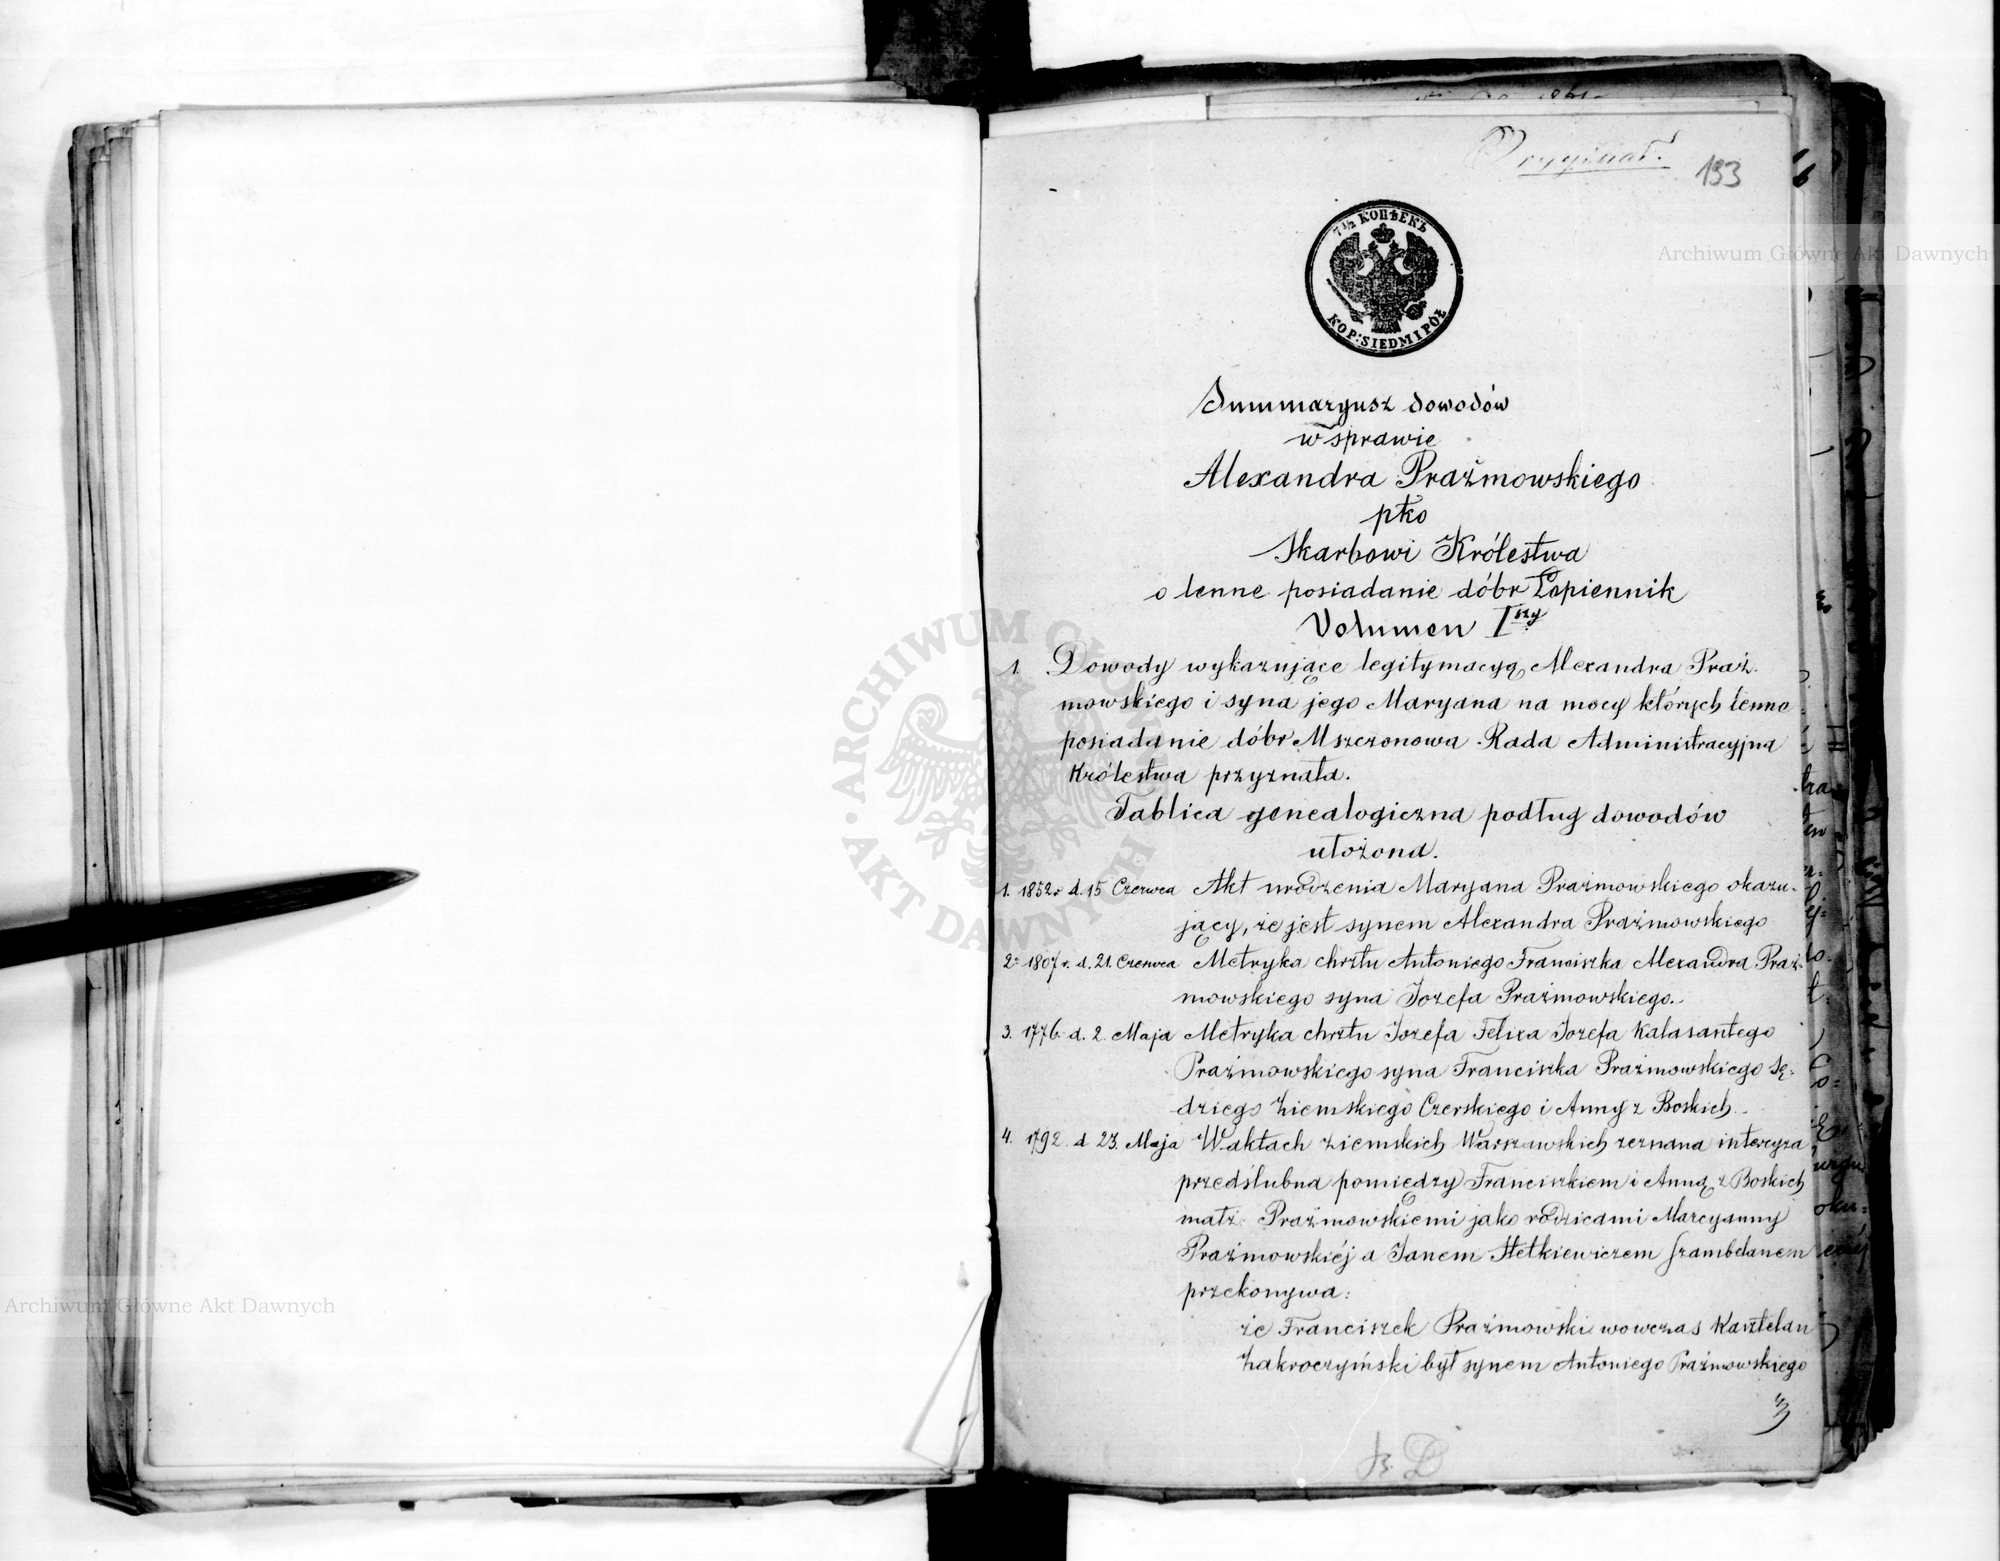 Oryginał.
193
7 1/2 КОПѢЕКЪ
KOP: SIEDM I PÓŁ
Summaryusz dowodów
w sprawie
Alexandra Prażmowskiego
pko
Skarbowi Królestwa
o lenne posiadanie dóbr Łopiennik
Volumen I szy
1. Dowody wykazujące legitymacyą Alexandra Praż-
mowskiego i syna jego Maryana na mocy których lenne
posiadanie dóbr Mszczonowa Rada Administracyjna
Królestwa przyznała.
Tablica genealogiczna podług dowodów
ułożona.
1. 1852 r. d. 15 Czerwca Akt urodzenia Maryana Prażmowskiego okazu-
jący, że jest synem Alexandra Prażmowskiego
2. 1807 r. d. 21. Czerwca Metryka chrztu Antoniego Franciszka Alexandra Praż-
mowskiego syna Jozefa Prażmowskiego.
3. 1776. d. 2. Maja Metryka chrztu Jozefa Felixa Jozefa Kalasantego
Prażmowskiego syna Franciszka Prażmowskiego Sę-
dziego Ziemskiego Czerskiego i Anny z Boskich.
4. 1792. d 23. Maja W aktach ziemskich Warszawskich zeznana intercyza
przedślubna pomiędzy Franciszkiem i Anną z Boskich
małż: Prażmowskiemi jako rodzicami Marcyanny
Prażmowskiéj a Janem Hetkiewiczem szambelanem
przekonywa:
że Franciszek Prażmowski wowczas Kasztelan
Zakroczyński był synem Antoniego Prażmowskiego
Archiwum Główne Akt Dawnych
Archiwum Główne Akt Dawnych
ARCHIWUM GŁÓWNE AKT DAWNYCH